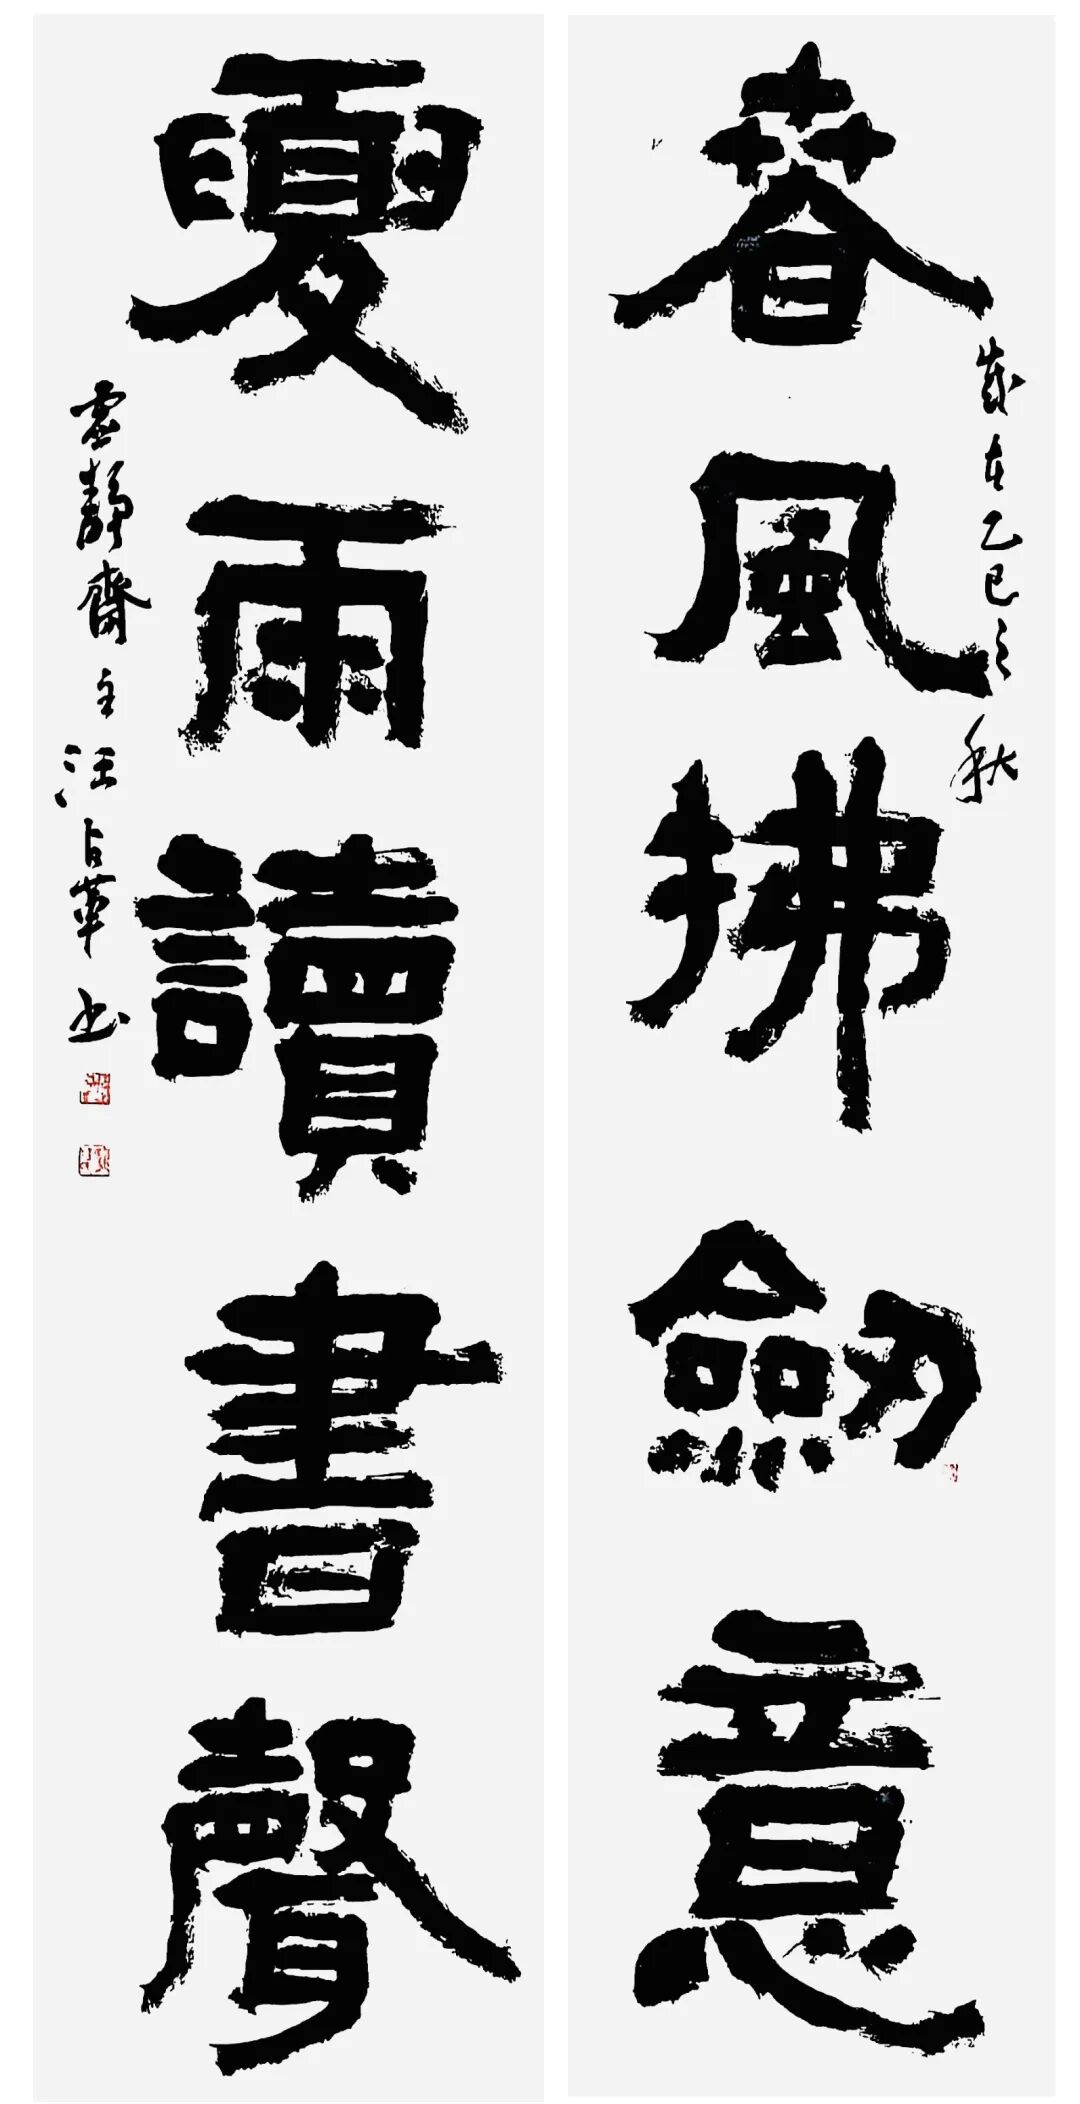 春風拂劍意
歲在乙巳之秋
夏雨讀書聲
雲靜齋主汪占華书